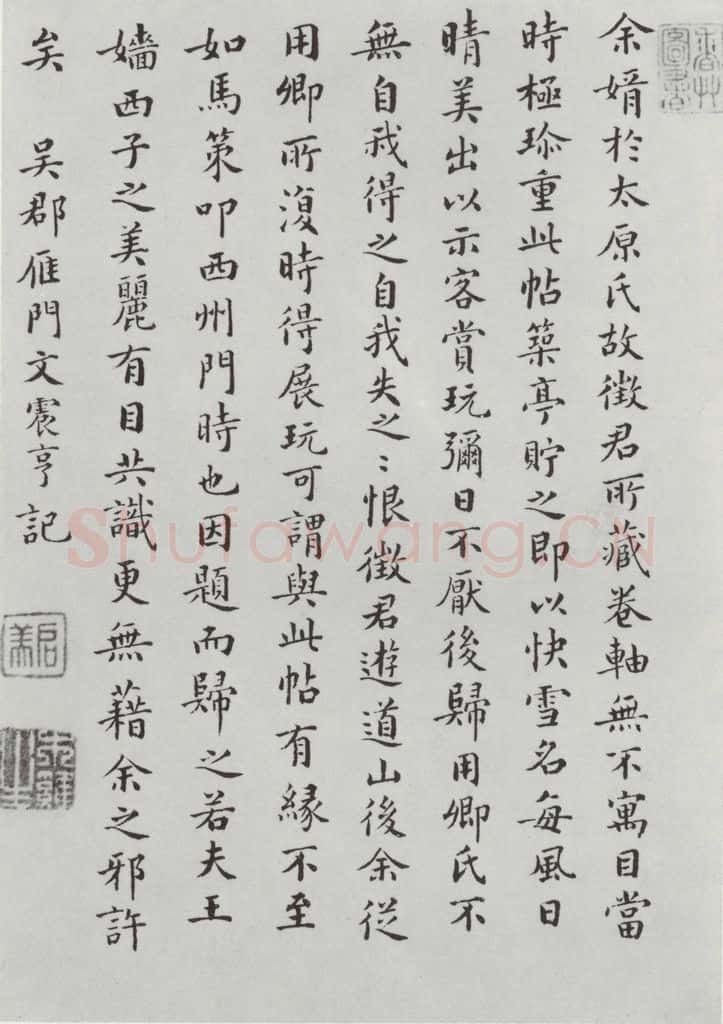 余婿於太原氏故徵君所藏卷軸無不寓目當
時極珎重此帖築亭貯之即以快雪名每風日
晴美出以示客賞玩彌日不厭後歸用卿氏不
無自我得之自我失之〻恨徵君遊道山後余從
用卿所復時得展玩可謂與此帖有緣不至
如馬策叩西州門時也因題而歸之若夫王
嬙西子之美麗有目共識更無藉余之邪許
矣 吳郡雁門文震亨記
Shufawang.CN